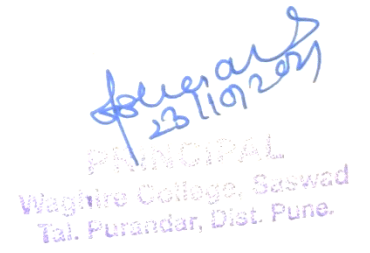 23/10/2021
PRINCIPAL
Waghire College, Saswad
Tal. Purandar, Dist. Pune.